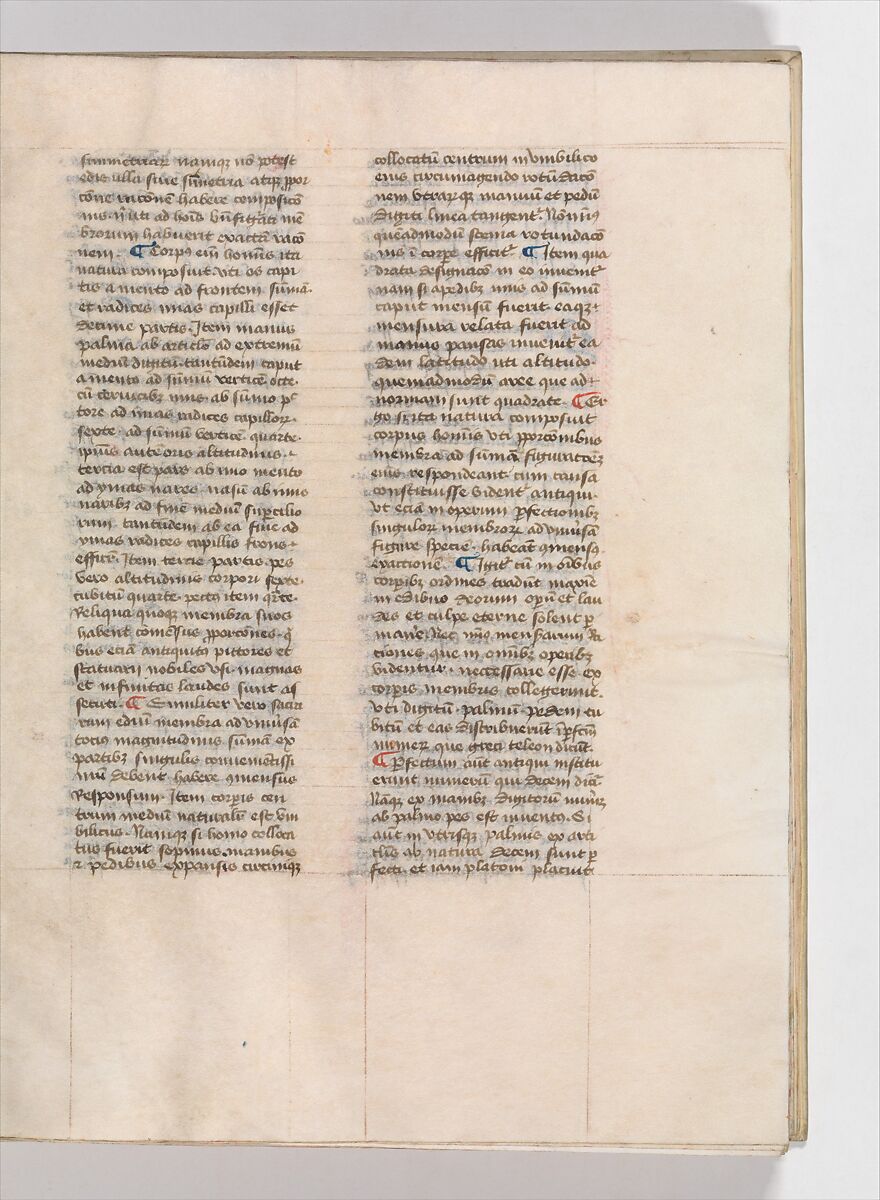 simmetriarum namq; nō potest
edis ulla sine sīmetria atq; ꝓpor
cōne racōnē habere composicō
nis nͥ uti ad hoīs bn̄ figᵃati mē
brorum habuerit exactā racō
nem. ¶ Corpꝰ eīm homīs ita
natura composuit. vti os capi
tis a mento ad frontem sūmā.
et radices imas capilli esset
decime partis. Item manus
palma ab articlo ad extremū
mediū digitū tantūdem caput
a mento ad sūmū verticē octe.
cū ceruicibꝫ imis ab sūmo pᶜ
tore ad imas radices capilloꝝ.
sexte. ad sūmū verticē quarte.
ipīus autē oris altitudinis.
tercia est pars ab imo mento
ad ymas nares. nasū ab imis
naribꝫ ad finē mediū supͨcilio
rum tantūdem ab ea fine ad
ymas radices capillis frons
efficit᷑. Item tercie partis pes
vero altitudinis corpori sexte.
cubitū quarte. pectꝰ item qᵃrte.
Reliqua quoqꝫ membra suos
habent comēsus ꝓporcōnes. qͥ
bus eciā antiquitꝰ pictores et
statuarii nobiles vsi. magnas
et infinitas laudes sunt as
secuti. ¶ Similiter vero sacra
rum ediū membra ad vniūsā
tociꝰ magnitudinis sūmā ex
partibꝫ singulis conuenientissi
mū debent habere ꝯmensus
Responsum. Item corpīs cen
trum mediū naturalit᷑ est vm
bilicus. Namqꝫ si homo colloca
tus fuerit sopinus. manibus
⁊ pedibus expansis circiniqꝫ
collocatū centrum in vmbilico
eius circumagendo rotūdacō
nem vtrarūqꝫ manuū et pedū
digiti linea tangent᷑. Nō minꝰ
queadmodū scema rotundacō
nis ī corpe efficit᷑. ¶ Item qua
drata designacō in eo inuenit᷑
nam si a pedibꝫ imis ad sūmū
caput mensū fuerit. eaqꝫ
mensura relata fuerit ad
manus pansas inuenit᷑ ea
dem latitudo uti altitudo.
quemadmodū aree que ad
normam sunt quadrate. ¶ Er
go si ita natura composuit
corpus homīs vti ꝓporcōnibus
membra ad sūmā figuracōnē
eius respondeant. cum causa
constituisse vident᷑ antiqui.
vt eciā in operum ꝑfectionibꝫ
singuloꝝ membroꝝ ad vniūsā
figure speciē. habeāt ꝯmensꝰ
exactionē. ¶ Igit᷑ cū in oībus
corpibꝫ ordines tradūt maxīe
in edibus deorum opͧū et lau
des et culpe eterne solent ꝑ
manere. Nec minꝰ mensurarum Ra
tiones que in omībꝫ operibꝫ
videntur. necessarie esse ex
corpis membris collegerunt.
vti digitū. palmū. pedem cu
bitū et eas distribuerūt ī ꝑfctūm
numerū que greci teleon dicūt.
¶ Ꝑfectum aūt antiqui institu
erunt numerū qui decem dicit᷑.
Nāqꝫ ex manibꝫ digitorū numerꝰ
ab palmo pes est inuento. Si
aūt in vtrisqꝫ palmis ex arti
clis ab natura decem sunt ꝑ
fecti. et iam platoni placuit.